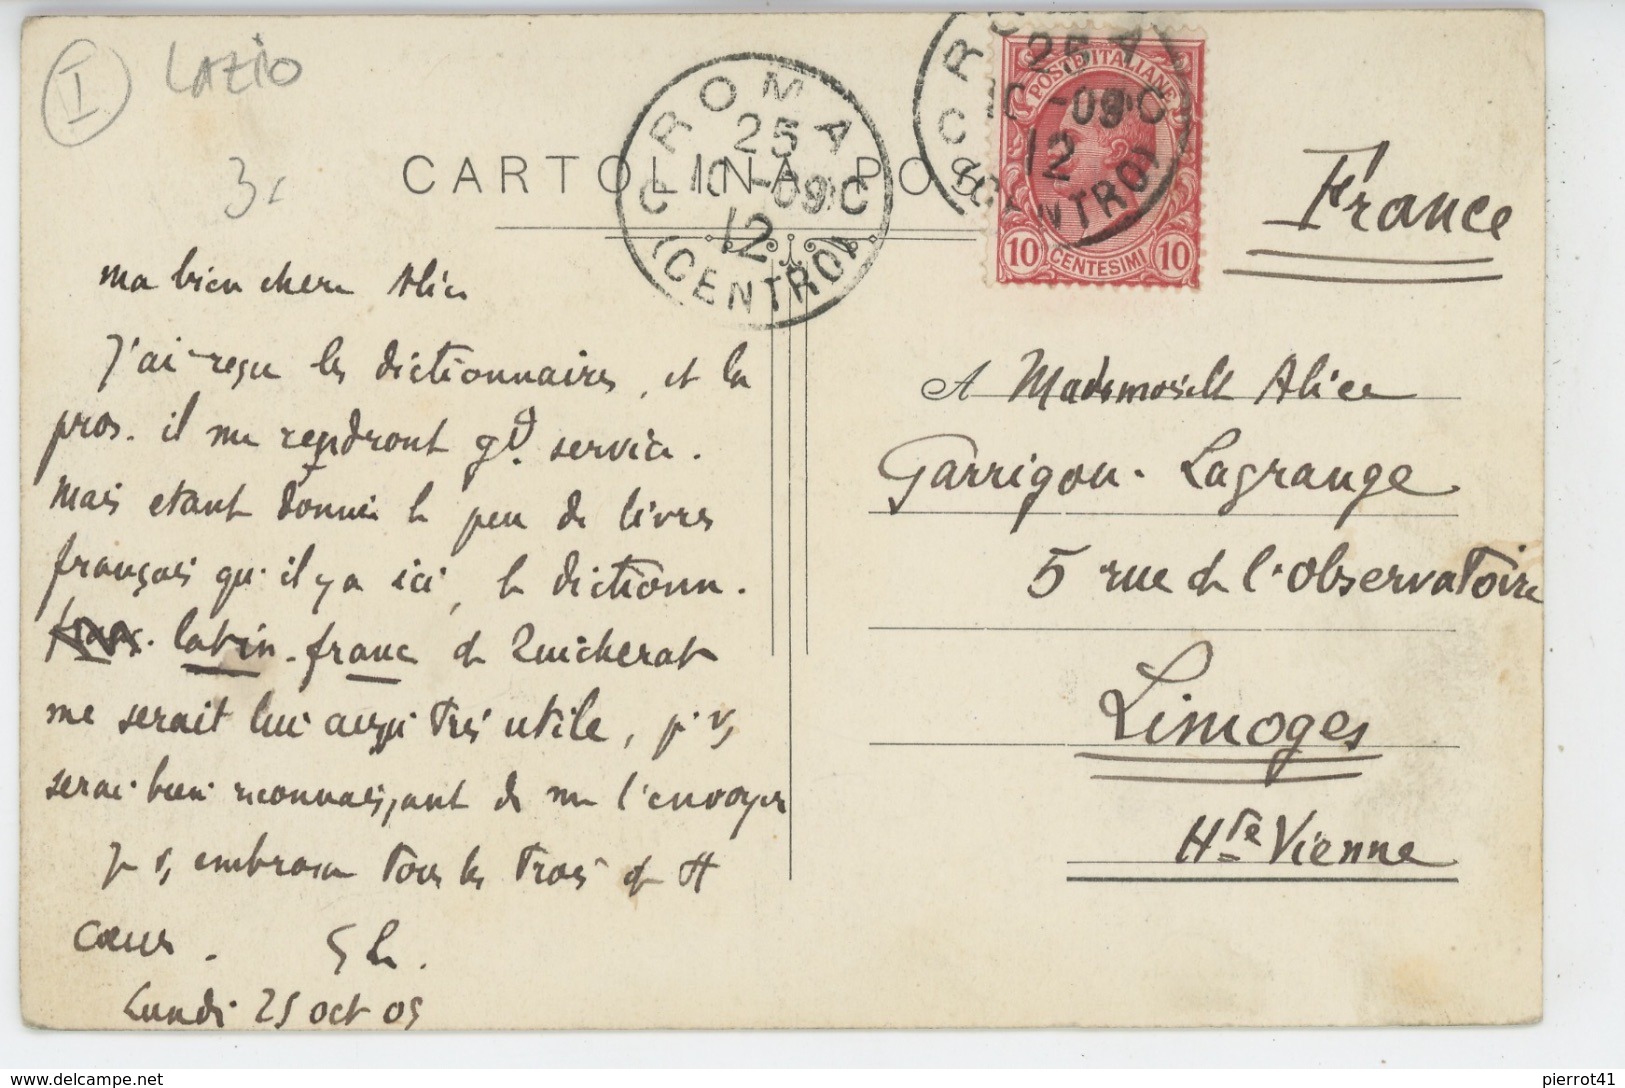 I
LAZIO
3€
CARTOLINA POS
ROMA
25
10-09
12
(CENTRO)
ROMA
25
10-09
12
(CENTRO)
POSTE ITALIANE
10 CENTESIMI 10
France
ma bien chere Alice
J'ai reçu les dictionnaires, et la
pros. il me rendront gd. service.
Mais etant donné le peu de livres
français qu'il y a ici, le dictionn.
franc. latin-franc de Quicherat
me serait lui aussi très utile, je vs
serai bien reconnaissant de me l'envoyer
Je vs embrasse tous les trois de tt
cœur.
Lundi 25 oct 09
A Mademoiselle Alice
Garrigou-Lagrange
5 rue de l'Observatoire
Limoges
Hte Vienne
delcampe.net
pierrot41